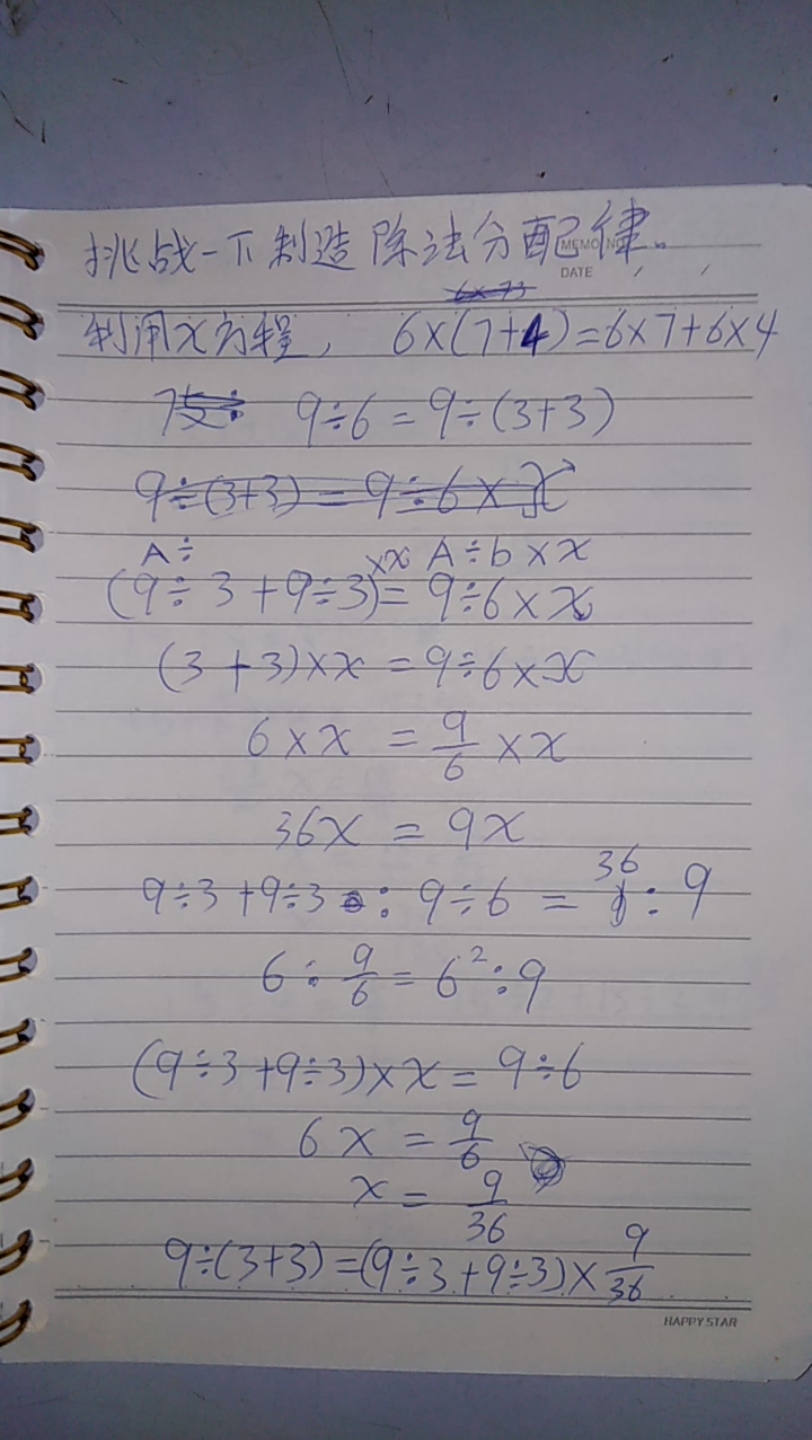 挑战一下制造除法分配律.
MEMO NO.
DATE / /
6×73
利用x方程, 6×(7+4)=6×7+6×4
9÷6=9÷(3+3)
9÷(3+3)=9÷6×x
A÷ ×x A÷b×x
(9÷3+9÷3)=9÷6×x
(3+3)×x=9÷6×x
6×x=9/6×x
36x=9x
9÷3+9÷3:9÷6=36:9
6:9/6=6²:9
(9÷3+9÷3)×x=9÷6
6x=9/6
x=9/36
9÷(3+3)=(9÷3+9÷3)×9/36
HAPPY STAR